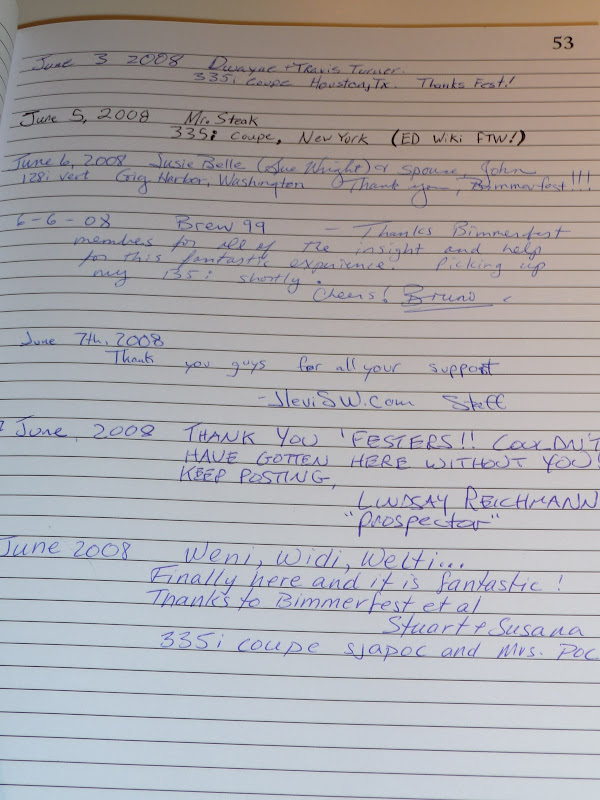 53
June 3 2008 Dwayne + Travis Turner.
335i coupe Houston, Tx. Thanks Fest!
June 5, 2008 Mr. Steak
335i coupe, New York (ED Wiki FTW!)
June 6, 2008 Susie Belle (Sue Wright) & spouse, John
128i vert Gig Harbor, Washington Thank you, Bimmerfest!!!
6-6-08 Brew 99 - Thanks Bimmerfest
members for all of the insight and help
for this fantastic experience. Picking up
my 135i shortly.
Cheers! Bruno
June 7th, 2008
Thank you guys for all your support
Staff
June, 2008 THANK YOU 'FESTERS!! COULDN'T
HAVE GOTTEN HERE WITHOUT YOU!
KEEP POSTING,
LINDSAY REICHMANN
"prospector"
June 2008 Weni, Widi, Welti...
Finally here and it is fantastic!
Thanks to Bimmerfest et al
Stuart + Susana
335i coupe sjapoc and Mrs. Poc